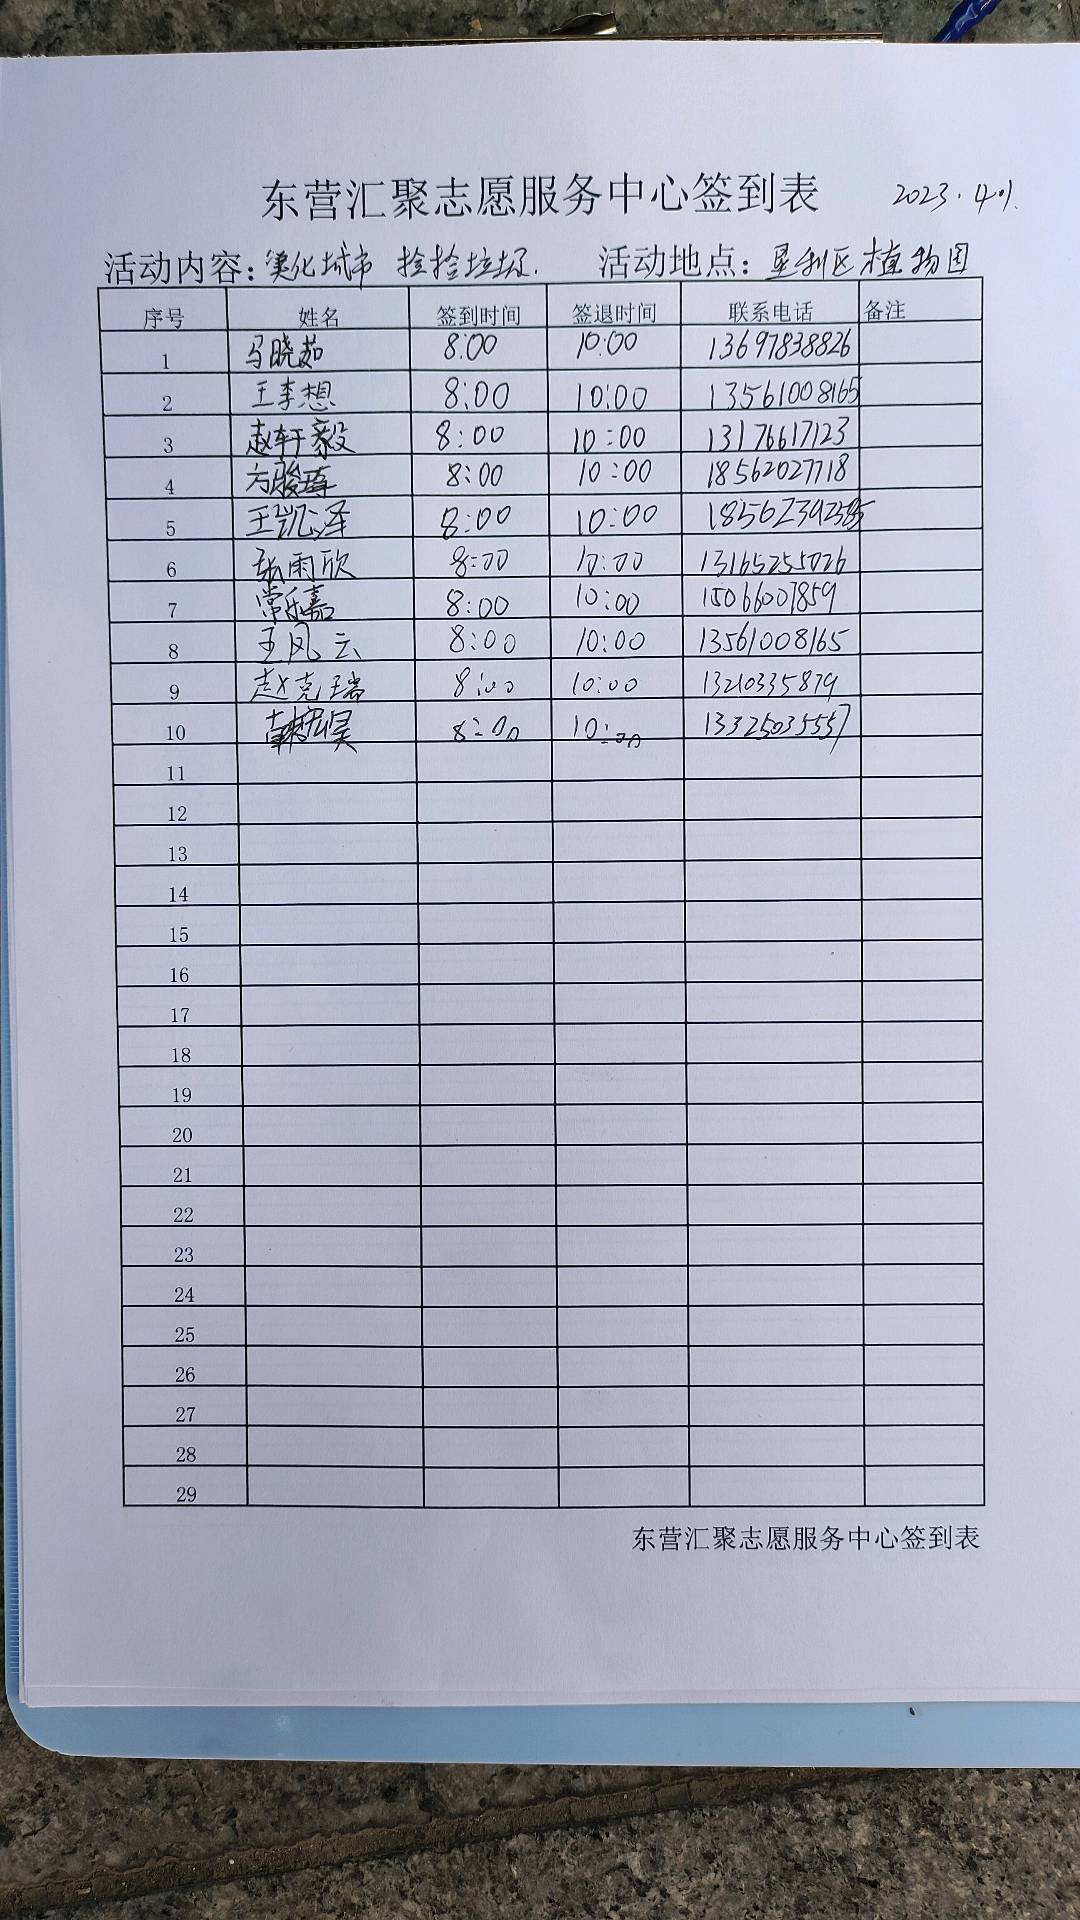 东营汇聚志愿服务中心签到表 2023.4
活动内容：美化城市 捡捡垃圾. 活动地点：垦利区植物园
序号 姓名 签到时间 签退时间 联系电话 备注
1 马晓茹 8:00 10:00 13697838826
2 王李想 8:00 10:00 13561008165
3 赵轩毅 8:00 10:00 13176617123
4 方骏 8:00 10:00 18562027718
5 王凯泽 8:00 10:00
6 张雨欣 8:00 10:00 13165255026
7 常乐嘉 8:00 10:00 15066007859
8 王凤云 8:00 10:00 13561008165
9 赵克瑞 8:00 10:00 13210335879
10 8:00 10:00 13325035557
11
12
13
14
15
16
17
18
19
20
21
22
23
24
25
26
27
28
29
东营汇聚志愿服务中心签到表